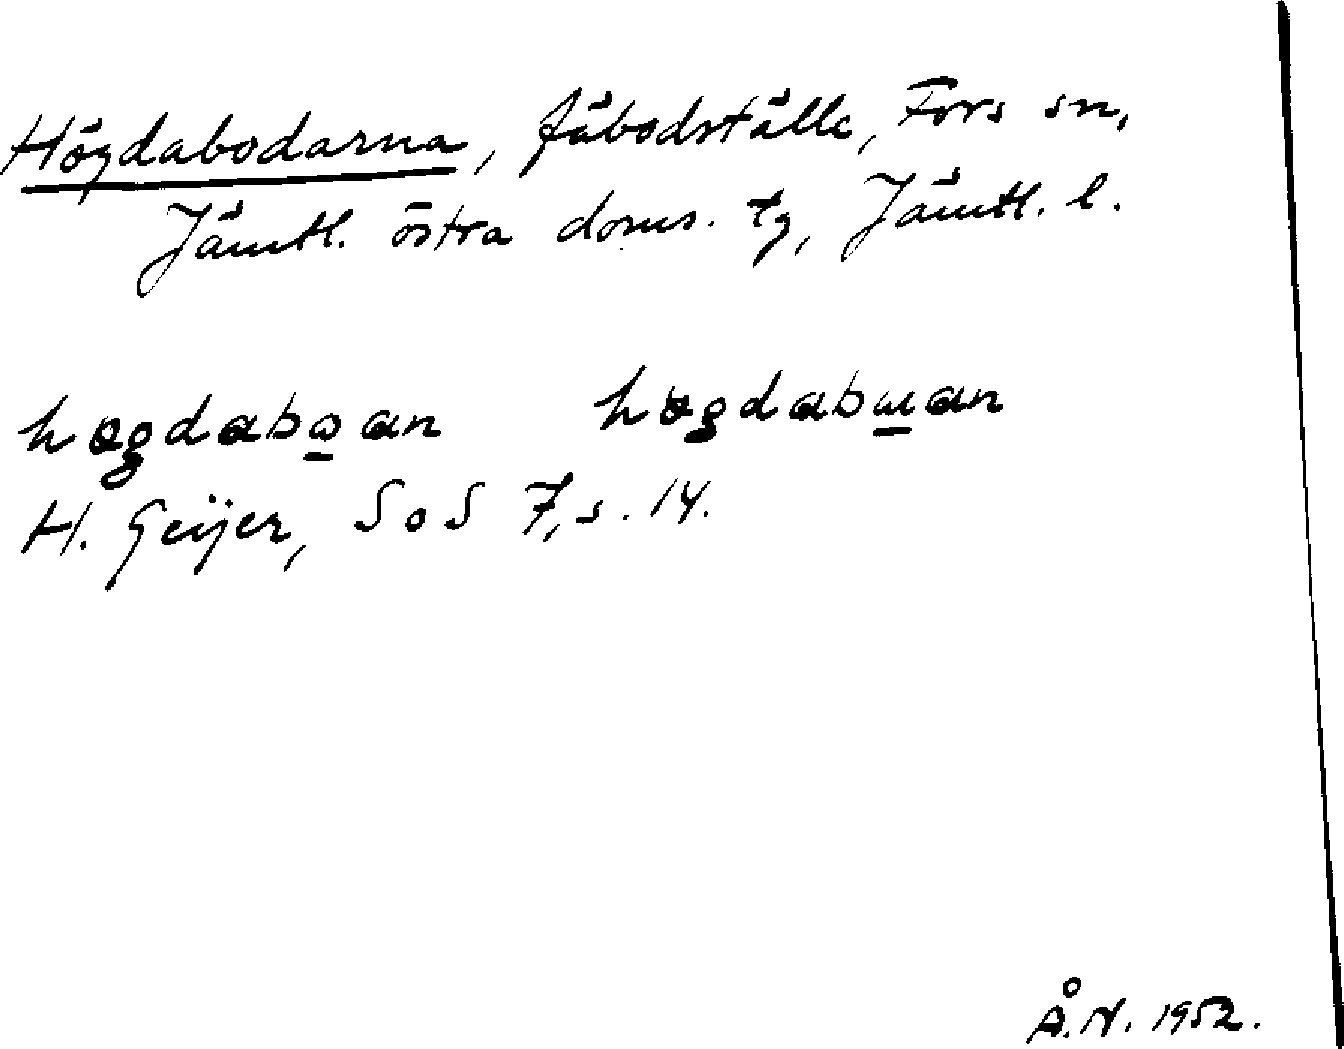 Högdabodarna, fäbodställe, Fors sn,
Jämtl. östra doms. tg, Jämtl. l.
høgdabo̲an høgdabɯ̲an
H. Geijer, SoS 7, s. 14.
Å.N. 1952.